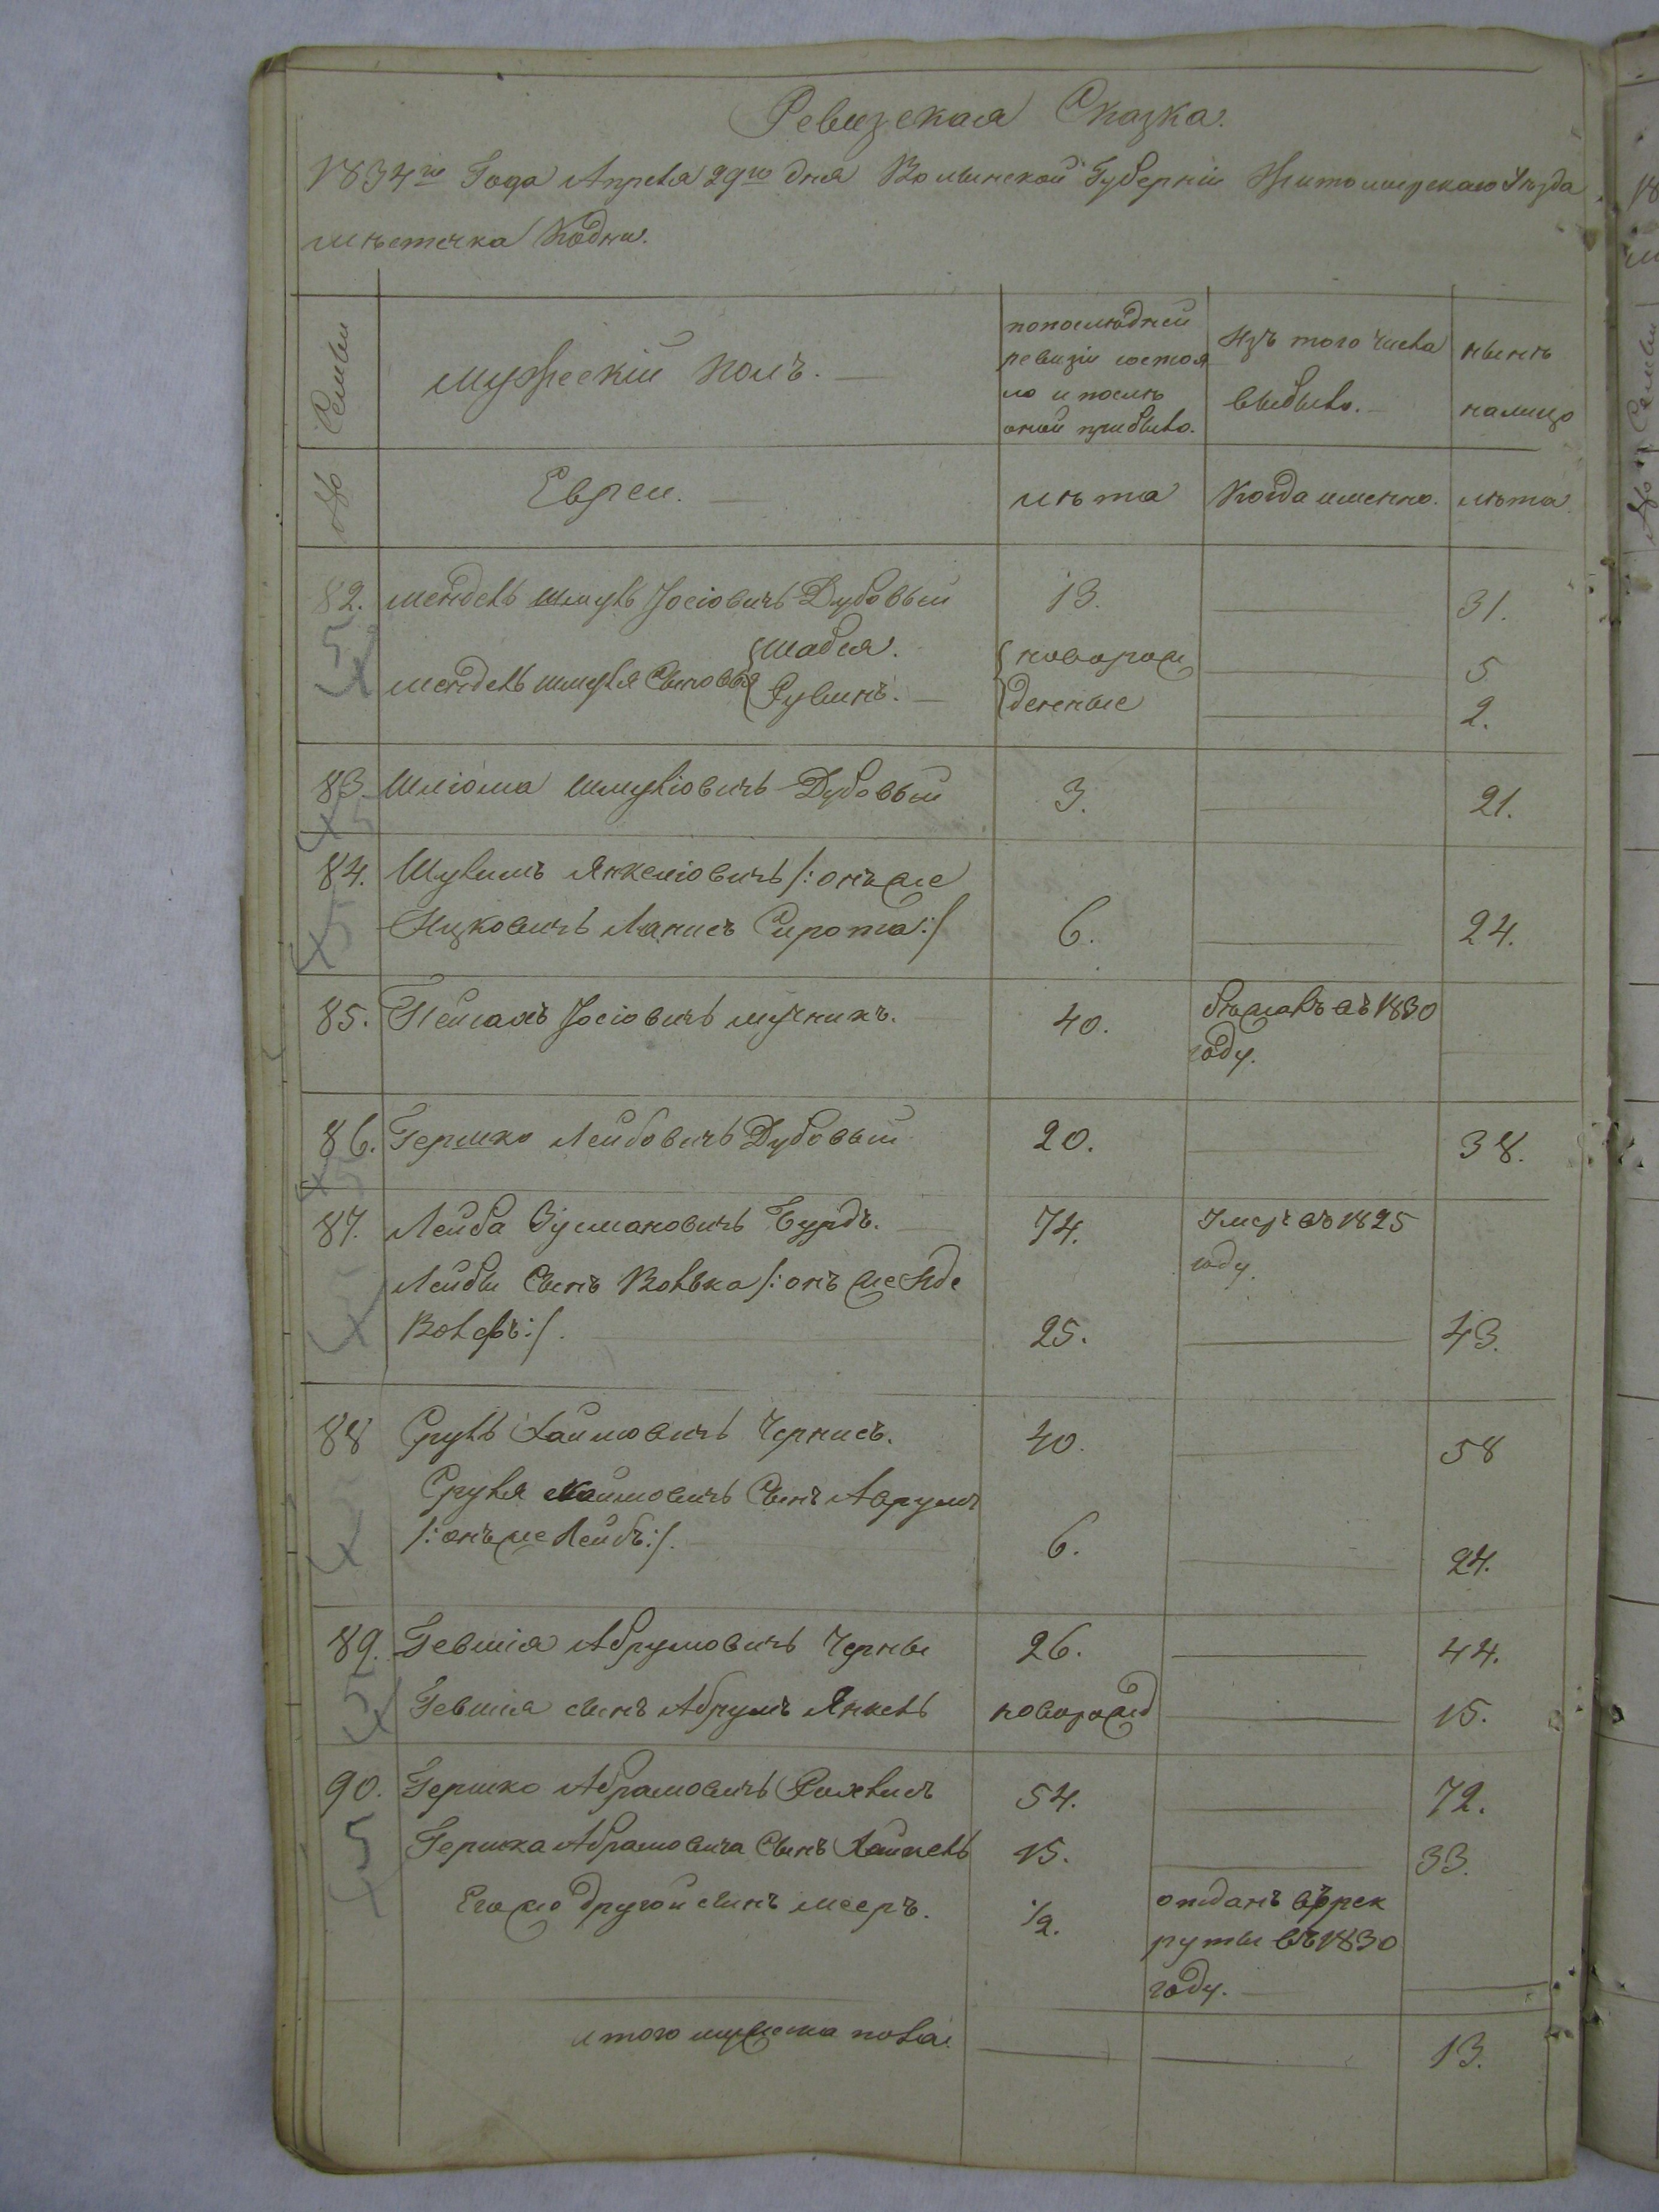 Ревизская Сказка.
1834го Года Апреля 29го дня Волынской Губерніи Житомирскаго Уезда
мѣстечка Кодни.
Семьи
мужескій полъ.
по последней
ревизіи состоя
ло и послѣ
оной прибыло.
Изъ того числа
выбыло.
нынѣ
налицо
№
Евреи.
лѣта
Когда именно.
лѣта.
82. Мендель Шмуль Іосіовичь Дубовый 13. 31.
Шабся. новорож 5
Мендель Шмуля Сыновья
Рувинъ. денные 2.
5
83. Шліома Шмуліовичь Дубовый 3. 21.
5
84. Шулимъ Янкеліовичь /: онъ же
Ицковичь Сирота :/ 6. 24.
5
85. Пейсахъ Іосіовичь Мучникъ. 40. бѣжалъ въ 1830
году.
86. Гершко Лейбовичь Дубовый 20. 38.
5
87. Лейба Зусмановичь Бурдъ. 74. Умеръ въ 1825
году.
Лейбы Сынъ Волька /: онъ же
Вольфъ :/. 25. 43.
88 Сруль Хаимовичь Чернисъ. 40. 58
Сруля Хаимовичь Сынъ Аврумъ
/: онъ же Лейбъ :/. 6. 24.
89. Гевшія Абрумовичь Черны 26. 44.
Гевшія сынъ Абрумъ Янкель новорожд 15.
5
90. Гершко Абрамовичь 54. 72.
Гершка Абрамовича Сынъ 15. 33.
5
Его же другой сынъ Мееръ. 1/2. отданъ въ рек
руты въ 1830
году.
итого мужеска пола. 13.